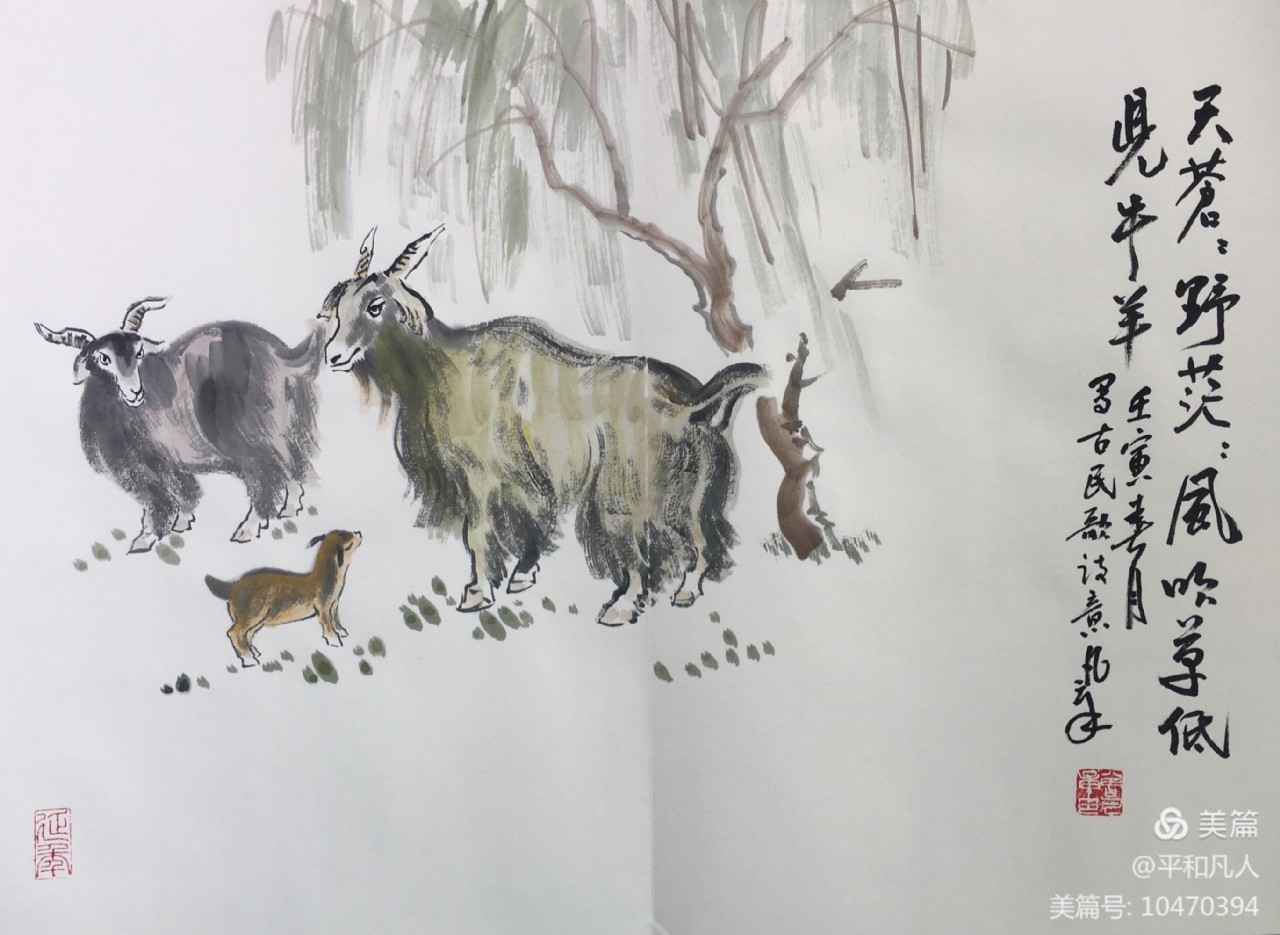 天苍〻野茫〻風吹草低
見牛羊
壬寅春月
写古民歌诗意凡
延年
美篇
@平和凡人
美篇号: 10470394